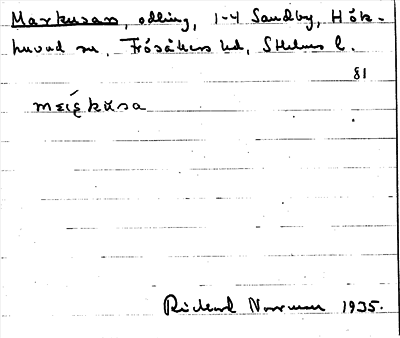 Markusan, odling, 1-4 Sandby, Hök-
huvud sn, Frösåkers hd, Sthlms l.
81
Richard Norman 1935.